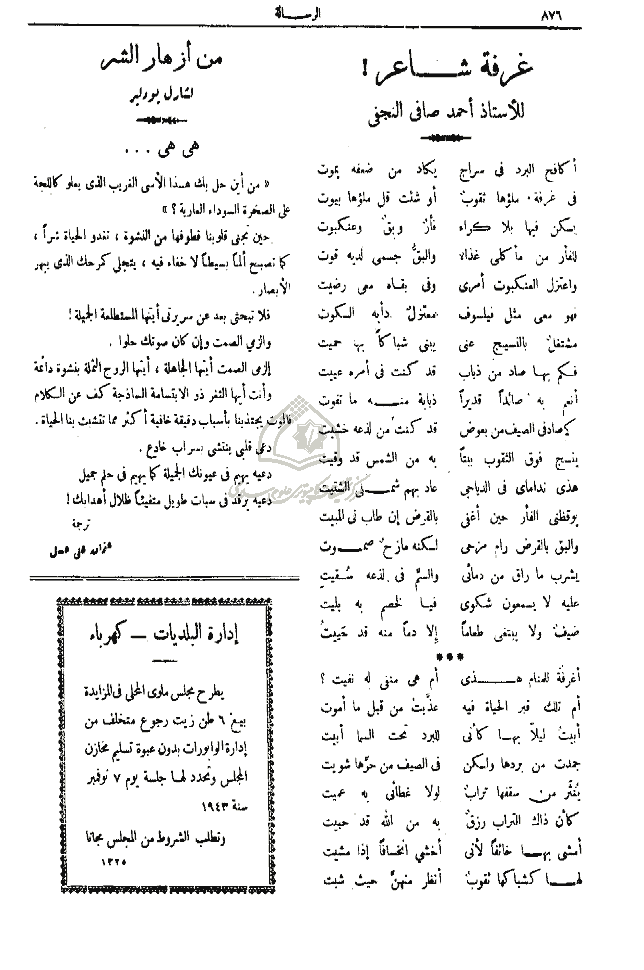 ٨٧٦
الرسالة
غرفة شاعر !
للأستاذ أحمد صافى النجفى
أكافح البرد فى سراج يكاد من ضعفه يموت
فى غرفة ملؤها ثقوبٌ أو شئت قل ملؤها بيوت
يسكن فيها بلا كراء فأرٌ وبقٌ وعنكبوت
للفأر من مأكلى غذاء والبقُّ جسمى لديه قوت
واعتزل العنكبوت أمرى وفى بقاه معى رضيت
فهو معى مثل فيلسوف بمعتزلٍ دأبه السكوت
مشتغلٌ بالنسيج عنى يبنى شباكاً بها حميت
فكم بها صاد من ذباب قد كنت فى أمره عييت
أنعم به صائداً قديراً ذبابة منه ما تفوت
كم صاد فى الصيف من بعوض قد كنت من لذعه خشيت
ينسج فوق الثقوب بيتاً به من الشمس قد وقيت
هذى نداماى فى الدياجى عاد بهم شملى الشتيت
يوقظنى الفأر حين أغفى بالقرض إن طاب لى المبيت
والبق بالقرض رام مزحى لكنه مازحٌ صموت
يشرب ما راق من دمائى والسمَّ فى لذعه سُقيت
عليه لا يسمعون شكوى فيا لخصم به بليت
ضيفٌ ولا يبتغى طعاماً إلا دماً منه قد حييت
***
أغرفة للمنام هذى أم هى منفى له نفيت ؟
أم تلك قبر الحياة فيه عذّبت من قبل ما أموت
أبيت ليلاً بها كأنى للبرد تحت السما أبيت
جمدت من بردها ولكن فى الصيف من حرّها شويت
يُنثر من سقفها ترابٌ لولا غطائى به عميت
كأن ذاك التراب رزقٌ به من الله قد حبيت
أمشى بها خائفاً لأنى أخشى انخسافاً إذا مشيت
لها كشباكها ثقوبٌ أنظر منهنّ حيث شيت
من أزهار الشر
لشارل بودلير
هى هى . . .
« من أين حل بك هذا الأسى الغريب الذى يعلو كاللجة
على الصخرة السوداء العارية ؟ »
حين تجنى قلوبنا قطوفها من النشوة ، تغدو الحياة شراً ،
كما تصبح ألماً بسيطاً لا خفاء فيه ، يتجلى كمرحك الذى يبهر
الأبصار .
فلا تبحثى بعد عن سريرتى أيتها المستطلعة الجميلة !
والزمى الصمت وإن كان صوتك حلوا .
إلزمى الصمت أيتها الجاهلة ، أيتها الروح الثملة بنشوة دائمة
وأنت أيها الثغر ذو الابتسامة الساذجة كف عن الكلام
فالموت يجتذبنا بأسباب دقيقة خافية أكثر مما تتشبث بنا الحياة .
دعى قلبى ينتشى بسراب خادع .
دعيه يهيم فى عيونك الجميلة كما يهيم فى حلم جميل
دعيه يرقد فى سبات طويل متفيئاً ظلال أهدابك !
ترجمة
إدارة البلديات — كهرباء
يطرح مجلس ملوى المحلى فى المزايدة
بيع ٦ طن زيت رجوع متخلف من
إدارة الوابورات بدون عبوة تسليم مخازن
المجلس وتحدد لها جلسة يوم ٧ نوفمبر
سنة ١٩٤٣
وتطلب الشروط من المجلس مجانا
١٣٢٥